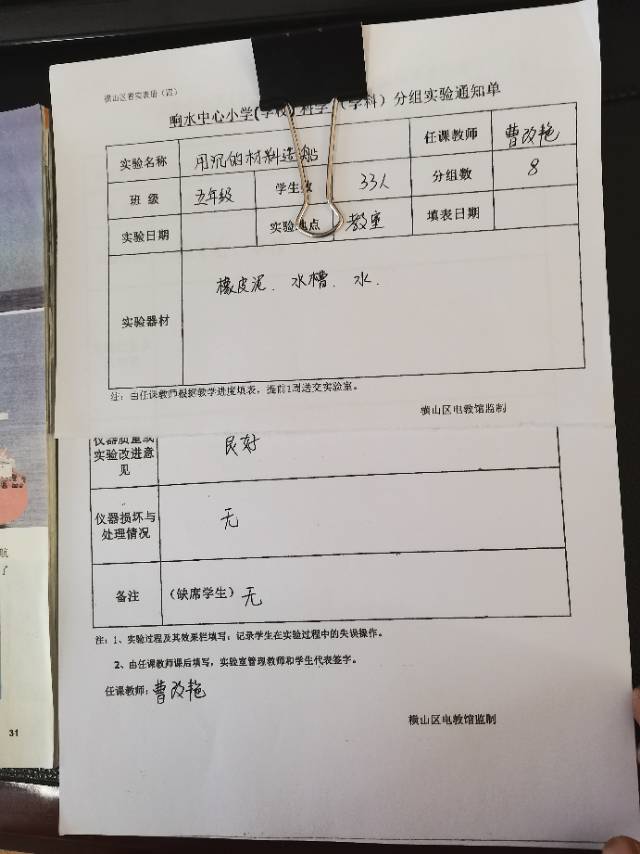 横山区普实表册（四）
响水中心小学(学校)科学（学科）分组实验通知单
实验名称 用沉的材料造船 任课教师 曹改艳
班 级 五年级 学生 33人 分组数 8
实验日期 实验地点 教室 填表日期
实验器材 橡皮泥、水槽、水.
注：由任课教师根据教学进度填表，提前1周送交实验室。
横山区电教馆监制
仪器质量或
实验改进意
见
良好
仪器损坏与
处理情况
无
备注 （缺席学生）无
注：1、实验过程及其效果栏填写：记录学生在实验过程中的失误操作。
2、由任课教师课后填写，实验室管理教师和学生代表签字。
任课教师：曹改艳
横山区电教馆监制
31